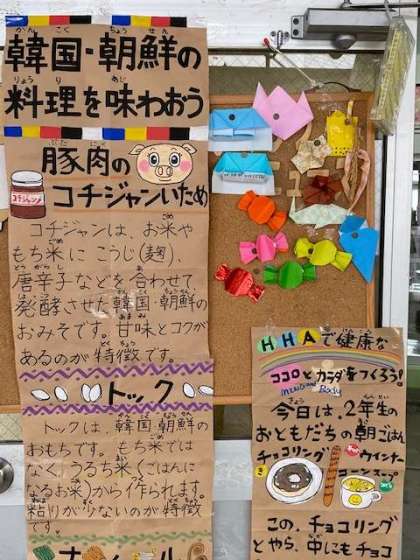 韓国・朝鮮の
料理を味わおう
豚肉の
コチジャンいため
コチジャン
コチジャンは、お米や
もち米にこうじ(麹)、
唐辛子などを合わせて
発酵させた韓国・朝鮮の
おみそです。甘味とコクが
あるのが特徴です。
トック
トックは、韓国・朝鮮の
おもちです。もち米では
なく、うるち米(ごはんに
なるお米)から作られます。
粘りが少ないのが特徴
です。
HHAで健康な
ココロとカラダをつくろう!
Mind Body
今日は、2年生の
おともだちの朝ごはん
チョコリング
ウインナー
コーンスープ
この、チョコリング
とやら、中にもチョコ